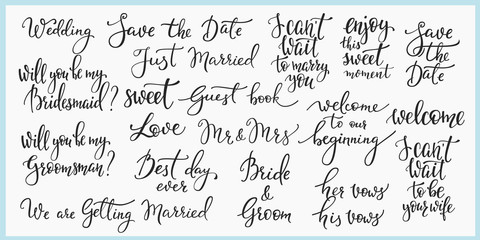 Wedding
Save the Date
I can't
wait
to marry
you
enjoy
this
sweet
moment
Save
the
Date
Just Married
will you be my
Bridesmaid?
sweet
Guest book
welcome
to our
beginning
welcome
Love
Mr & Mrs
will you be my
Groomsman?
Best day
ever
Bride
&
Groom
her vows
his vows
I can't
wait
to be
your wife
We are Getting Married